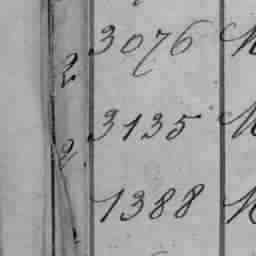 2 3076
2. 3135
1388